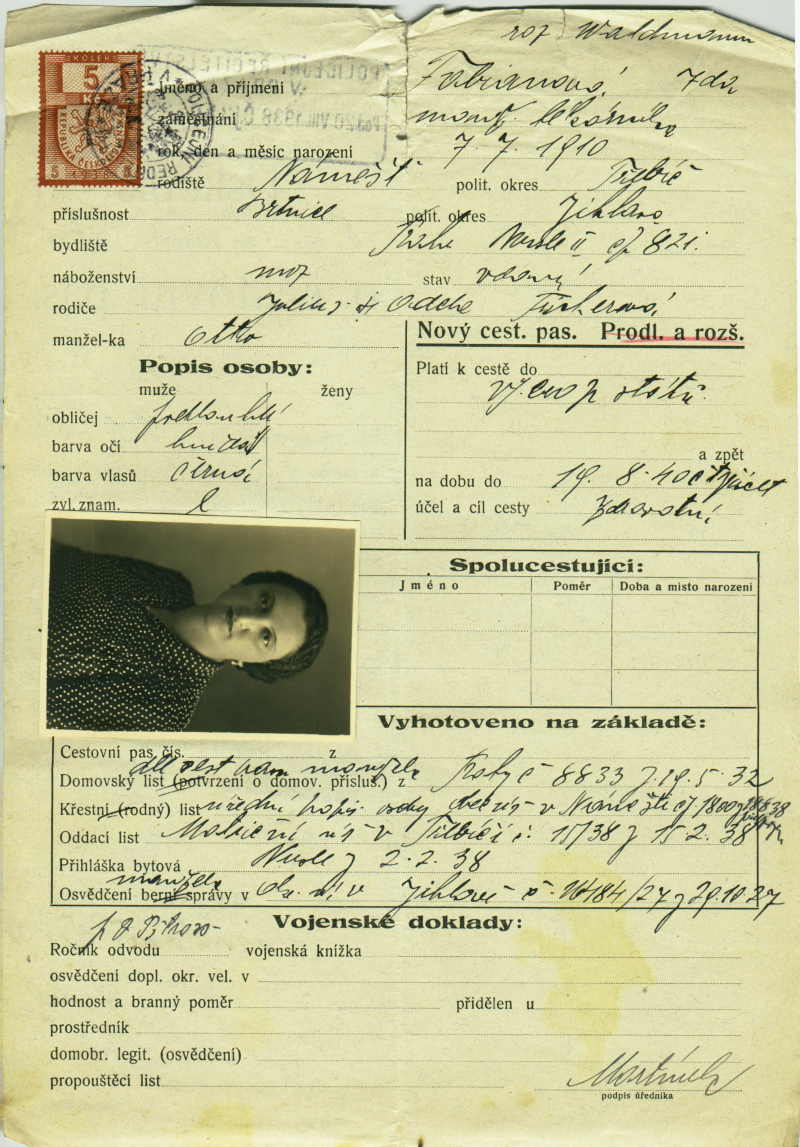 roz Waldmann
KOLEK
5
Kč
REPUBLIKA ČESKOSLOVENSKÁ
5 1938
POLICEJNÍ ŘEDITELSTVÍ
V
VIII 1938
jméno a příjmení Fabianová Ida
zaměstnání manž.
rok, den a měsíc narození 7. 7. 1910
rodiště Náměšť polit. okres Třebíč
příslušnost Brtnice polit. okres Jihlava
bydliště Nusle II čp 821.
náboženství moz stav vdaná
rodiče Julius Adela
manžel-ka Otto
Nový cest. pas. Prodl. a rozš.
Popis osoby:
muže ženy
obličej
barva očí hnědá
barva vlasů černá
zvl. znam.
Platí k cestě do
vš. evrop států
a zpět
na dobu do 19. 8. 40
účel a cíl cesty Zdravotní
Spolucestující:
Jméno Poměr Doba a místo narození
Vyhotoveno na základě:
Cestovní pas. čís. z
dle cest pasu manžela
Domovský list (potvrzení o domov. přísluš.) z č 8833 z 19. 5. 32
Křestní (rodný) list úřední popis osoby v Náměšti
Oddací list Matriční úř v Třebíči č. 15/38 z 15. 2. 38
Přihláška bytová Nusle z 2. 2. 38
manžela
Osvědčení berní správy v v Jihlavě č. 16184/27 z 29. 10. 27
Vojenské doklady:
Ročník odvodu vojenská knížka
osvědčení dopl. okr. vel. v
hodnost a branný poměr přidělen u
prostředník
domobr. legit. (osvědčení)
propouštěcí list
podpis úředníka